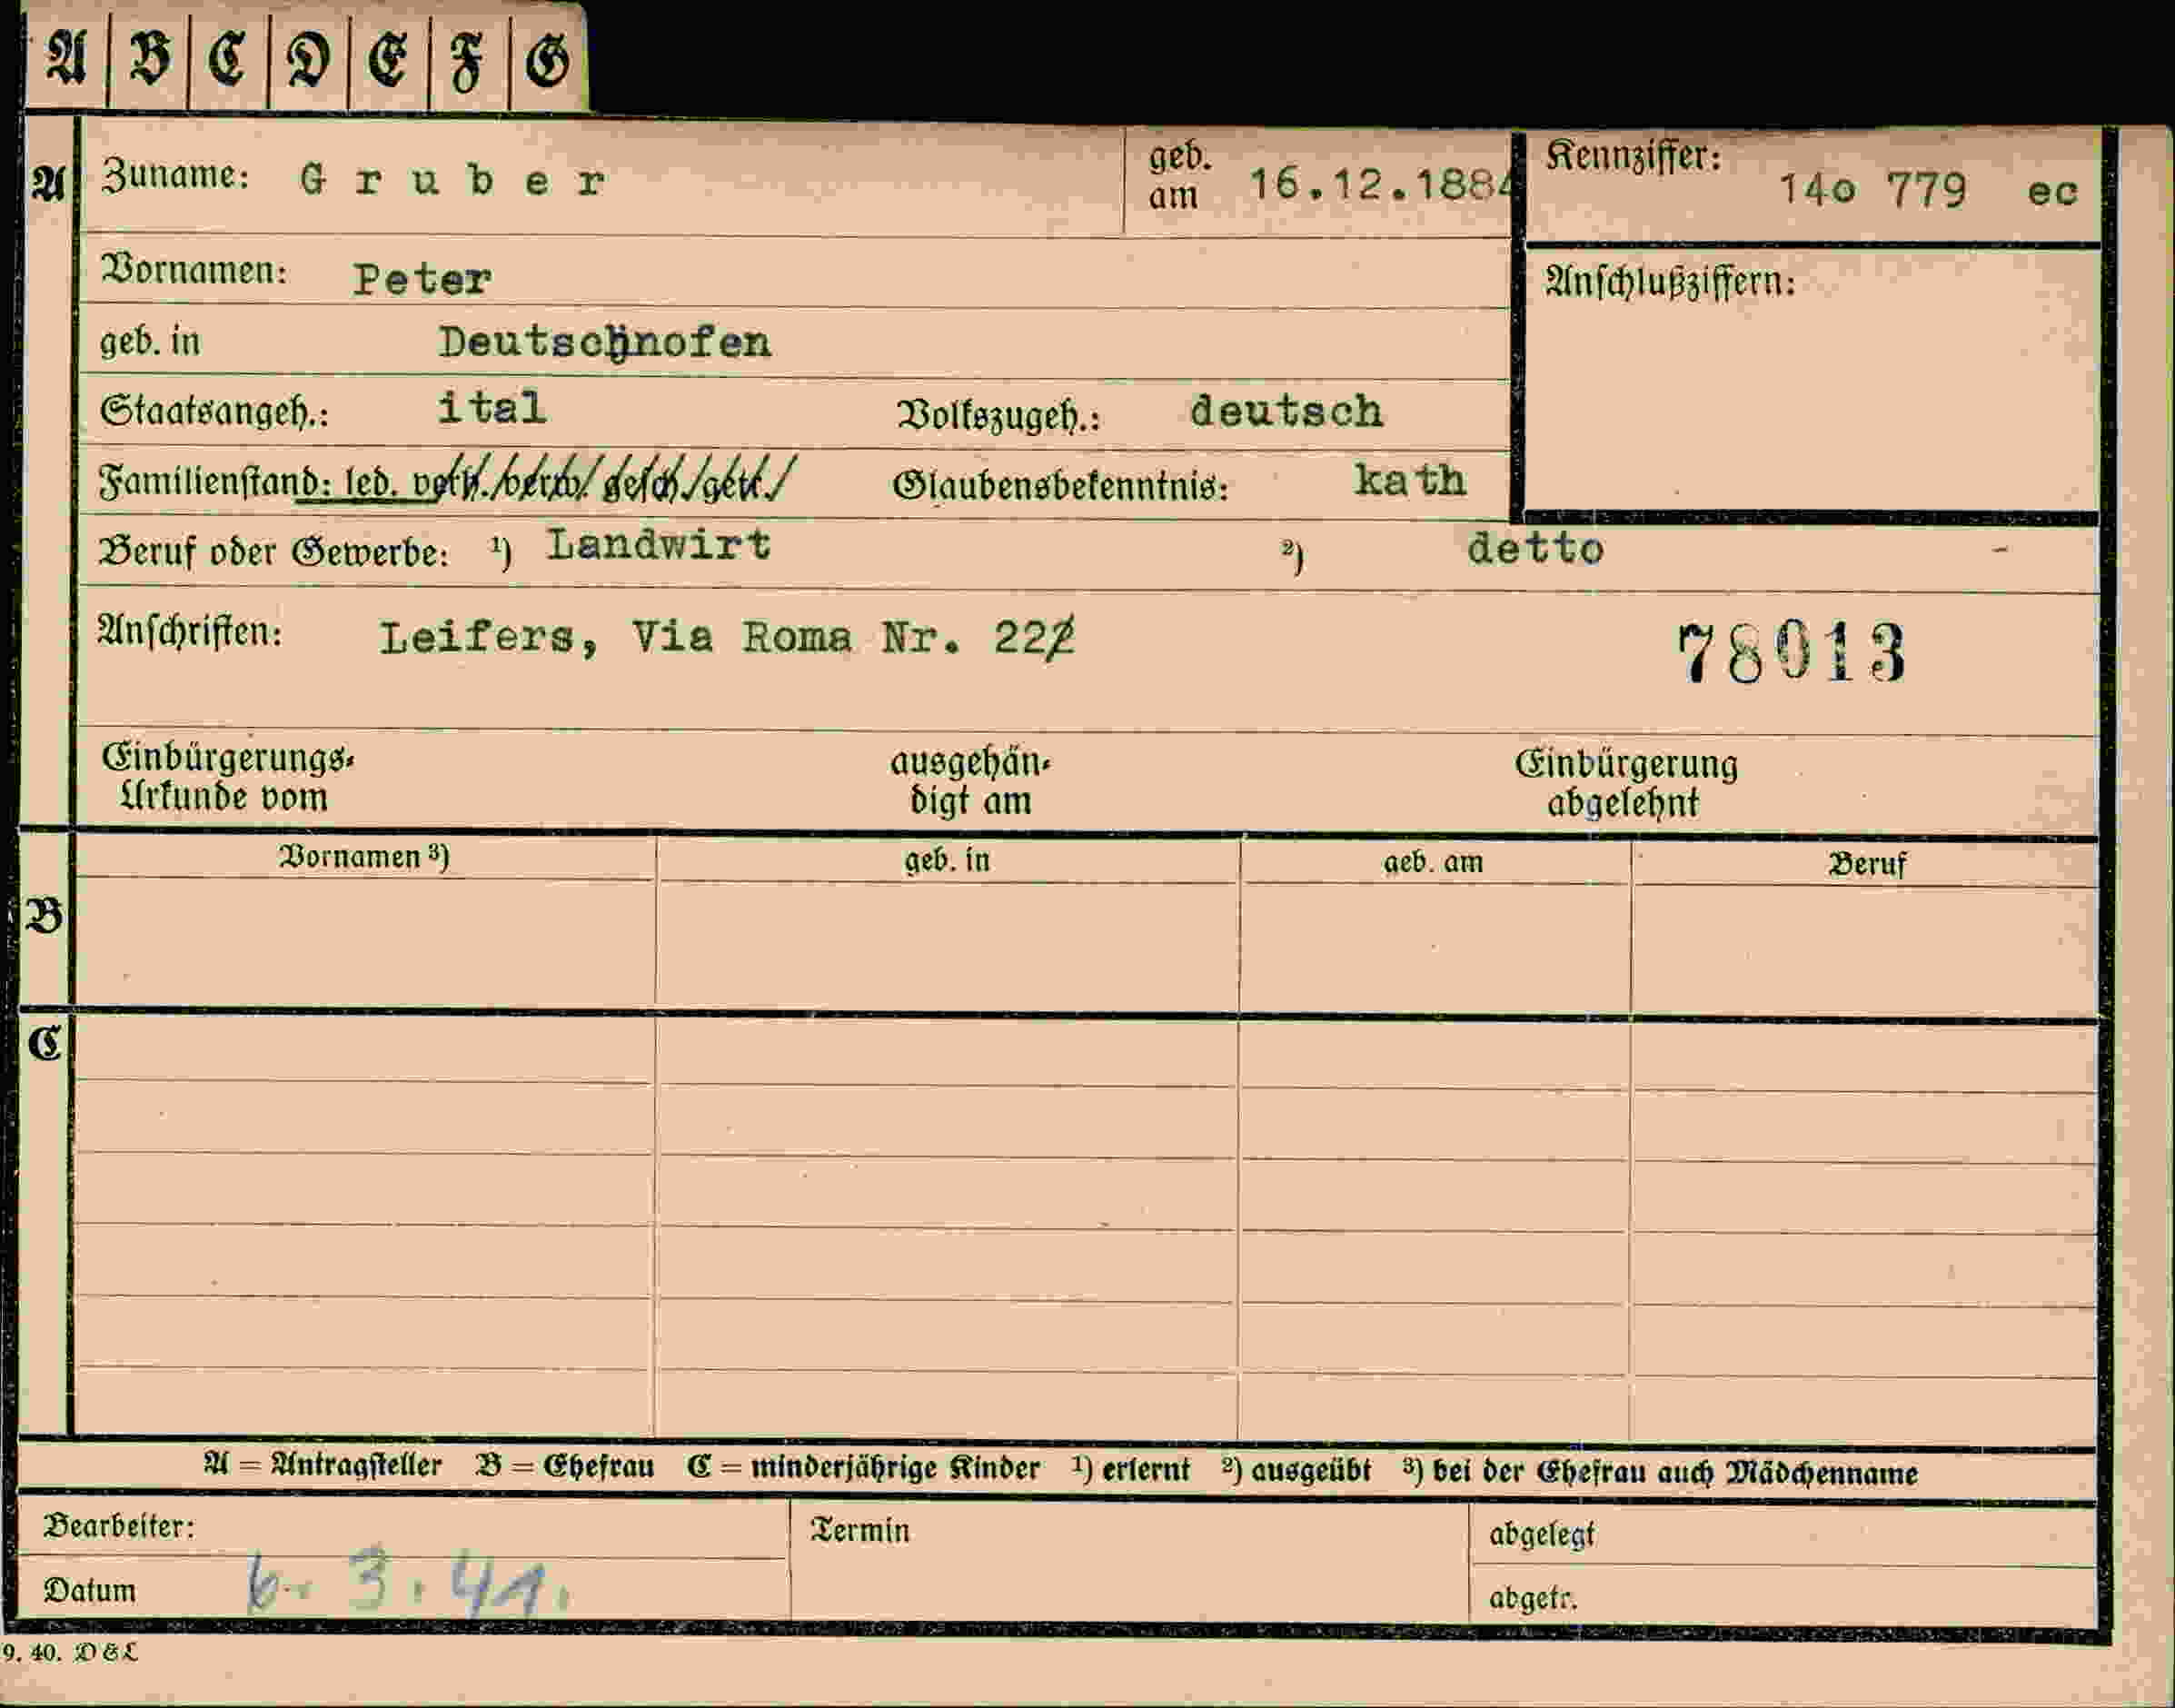 A B C D E F G
A Zuname: Gruber geb. am 16.12.1884 Kennziffer: 14o 779 ec
Vornamen: Peter Anschlußziffern:
geb. in Deutschnofen
Staatsangeh.: ital Volkszugeh.: deutsch
Familienstand: led. verh./verw./gesch./getr./ Glaubensbekenntnis: kath
Beruf oder Gewerbe: ¹) Landwirt ²) detto -
Anschriften: Leifers, Via Roma Nr. 222 78013
Einbürgerungs-Urkunde vom ausgehändigt am Einbürgerung abgelehnt
Vornamen ³) geb. in geb. am Beruf
B
C
A = Antragsteller B = Ehefrau C = minderjährige Kinder ¹) erlernt ²) ausgeübt ³) bei der Ehefrau auch Mädchenname
Bearbeiter: Termin abgelegt
Datum 6. 3. 41. abgetr.
9. 40. D & L